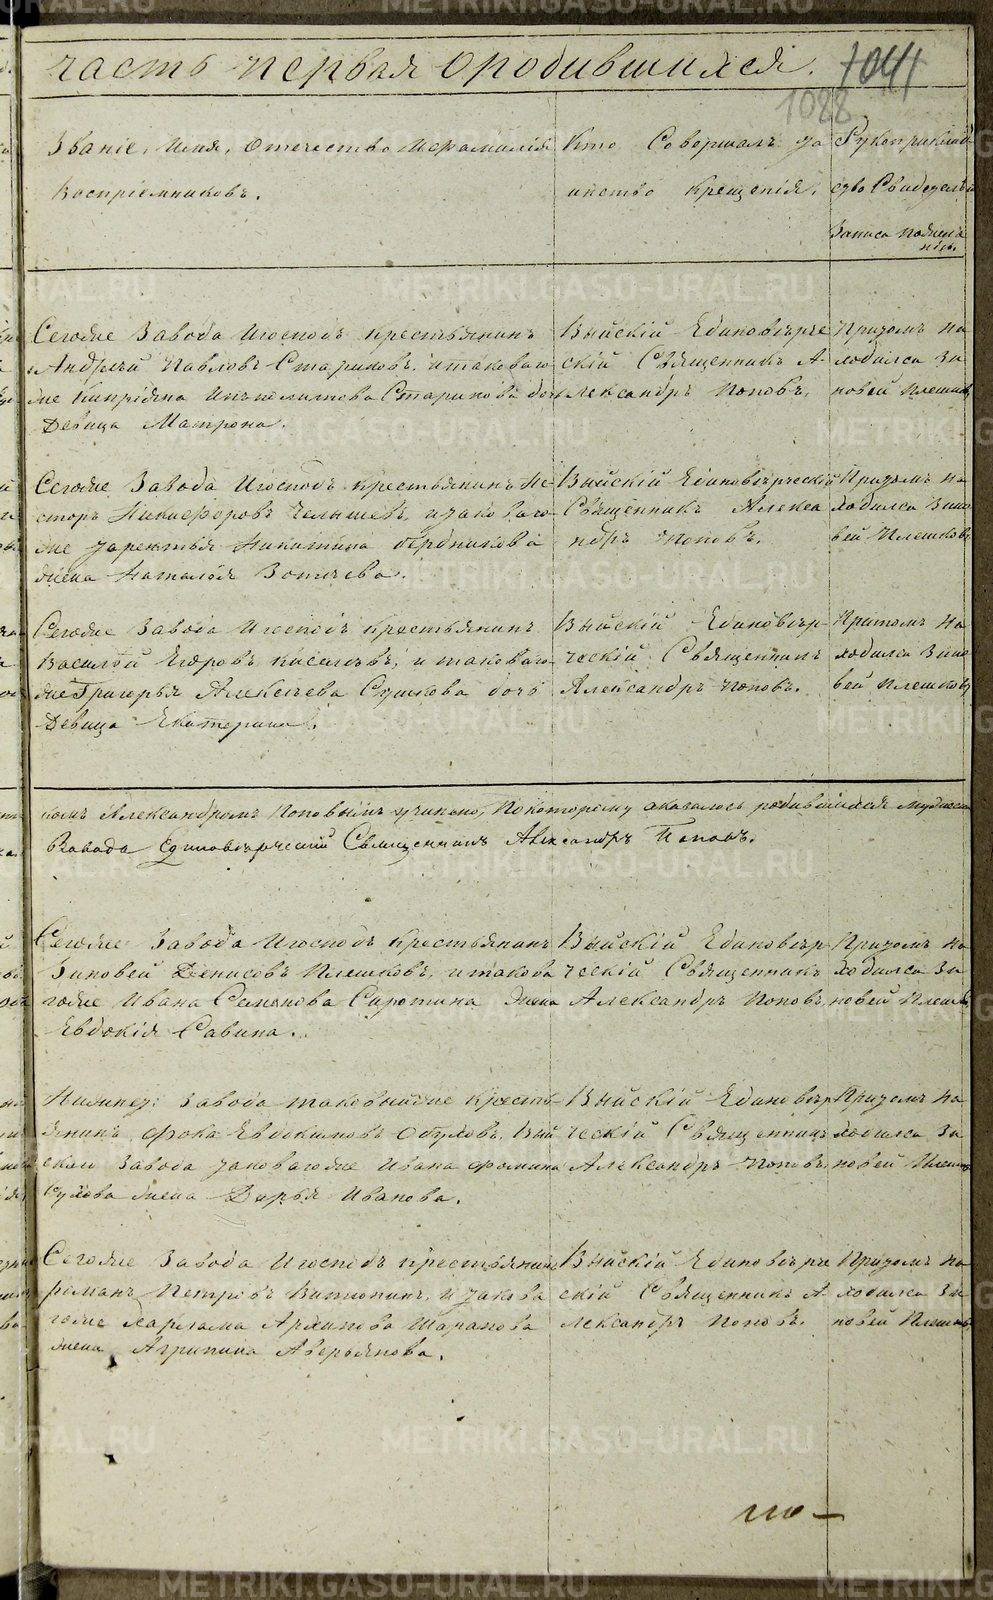 часть первая ородившихся.
1041
1088
Званіе, Имя, Отечество Ифамилія
Воспріемниковъ.
Кто Совершалъ та
инство Крещенія.
Рукоприклад
ство Свидетелей
Записи
Сегоже Завода Игосподъ крестьянинъ
Андрей Павловъ Стариковъ, итаковаго
же Кипріяна Ипполитова Старикова дочь
Девица Матрона.
Выйскій Единоверче
скій Священникъ А-
лександръ Поповъ.
Притомъ на
ходился Зи
новей Плешков
Сегоже Завода Игосподъ крестьянинъ Не
сторъ Никифоровъ Челышевъ, итаковаго
же Никитина
жена Наталья
Выйскій Единоверческій
Священникъ Алекса
ндръ Поповъ.
Притомъ на
ходился Зино
вей Плешковъ
Сегоже Завода Игосподъ крестьянинъ
Василей Егоровъ Киселевъ, и таковаго
же Григорья Алексеева Сушкова дочь
Девица Екатерина.
Выйскій Единовер-
ческій Священникъ
Александръ Поповъ.
Притомъ на
ходился Зино
вей Плешковъ
комъ Александромъ Поповымъ учинено, Покоторому оказалось родившихся
Завода Единоверческій Священникъ Александръ Поповъ.
Сегоже Завода Игосподъ крестьянинъ
Зиновей Денисовъ Плешковъ, итакова
гоже Ивана Семенова Сиротина жена
Евдокія Савина.
Выйскій Единовер
ческій Священникъ
Александръ Поповъ
Притомъ на
ходился Зи
новей Плешк
Завода таковыйже Кресть
янинъ Фока Евдокимовъ Обуховъ, Вый
скаго Завода таковагоже Ивана Фомина
жена Дарья Иванова.
Выйскій Единовер
ческій Священникъ
Александръ Поповъ
Притомъ на
ходился Зи
новей Плешк
Сегоже Завода Игосподъ крестьянинъ
романъ Петровъ и такова
гоже Харлама Архипова Шарапова
жена Агрипина Аверьянова.
Выйскій Единоверче
скій Священникъ А
лександръ Поповъ.
Притомъ на
ходился Зи
новей Плешк
по-
METRIKI.GASO-URAL.RU